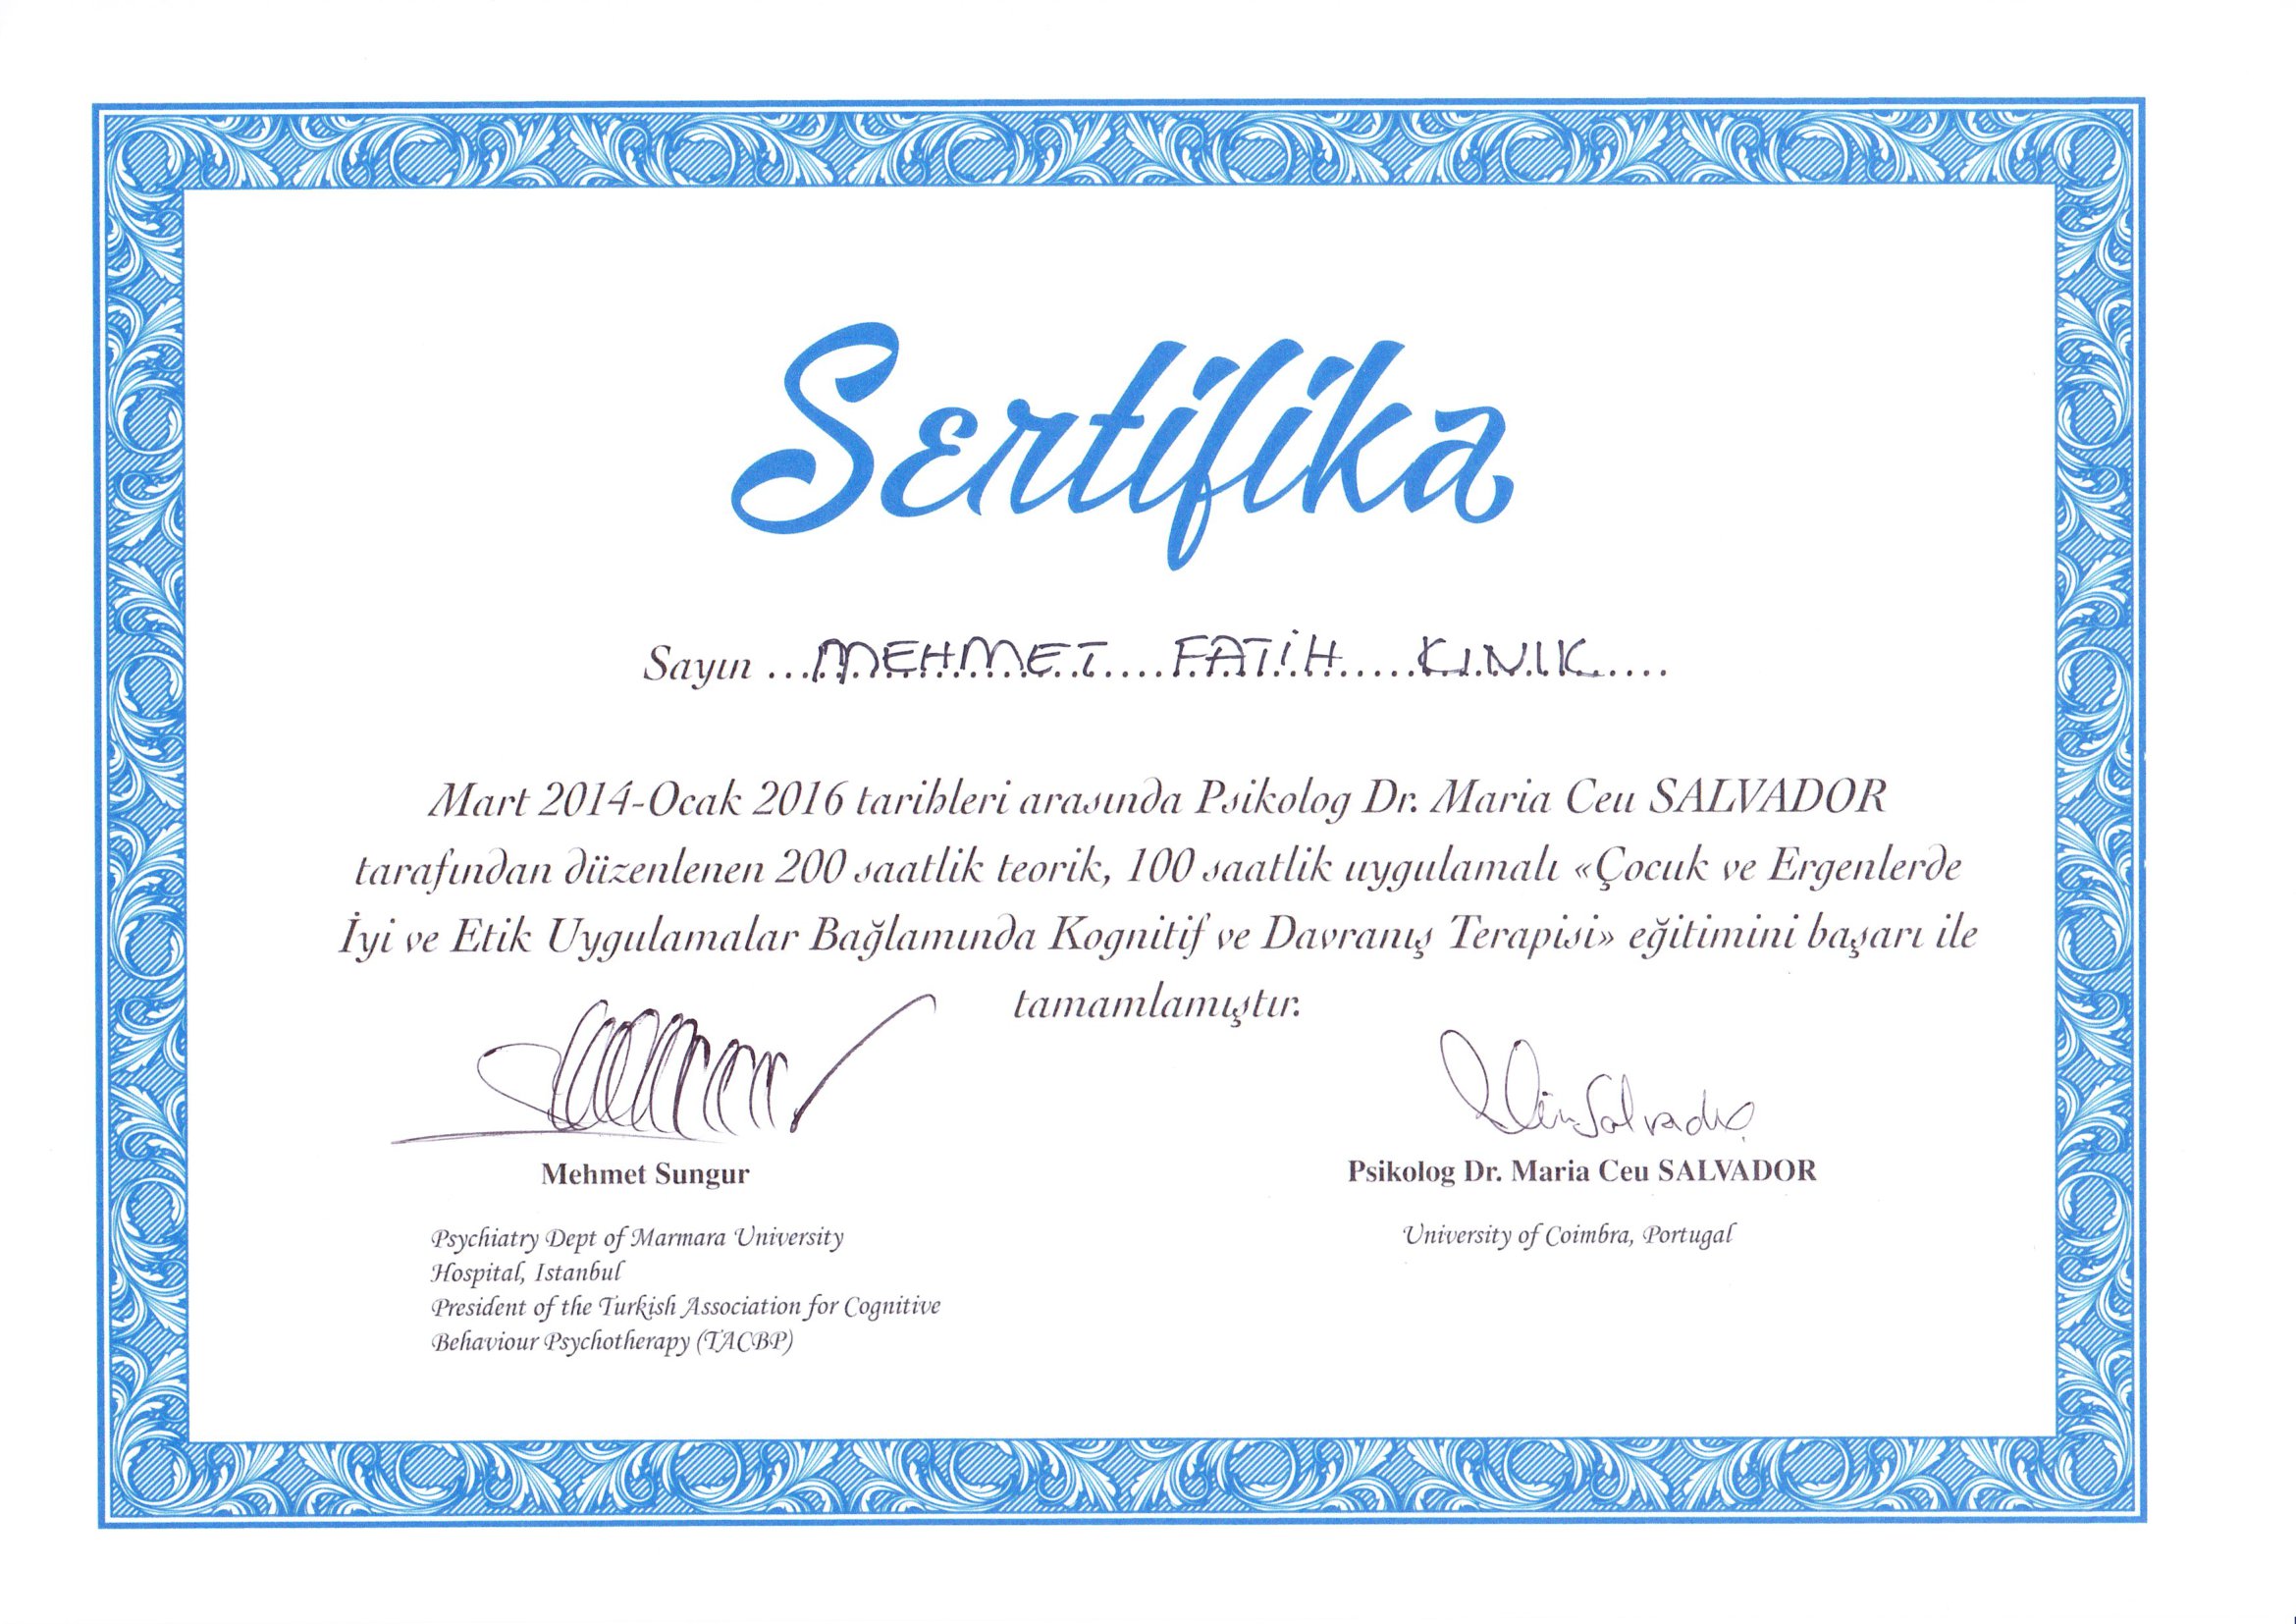 Sertifika
Sayın ...MEHMET....FATİH.....KINIK.....
Mart 2014-Ocak 2016 tarihleri arasında Psikolog Dr. Maria Ceu SALVADOR
tarafından düzenlenen 200 saatlik teorik, 100 saatlik uygulamalı «Çocuk ve Ergenlerde
İyi ve Etik Uygulamalar Bağlamında Kognitif ve Davranış Terapisi» eğitimini başarı ile
tamamlamıştır.
Mehmet Sungur
Psychiatry Dept of Marmara University
Hospital, Istanbul
President of the Turkish Association for Cognitive
Behaviour Psychotherapy (TACBP)
Psikolog Dr. Maria Ceu SALVADOR
University of Coimbra, Portugal